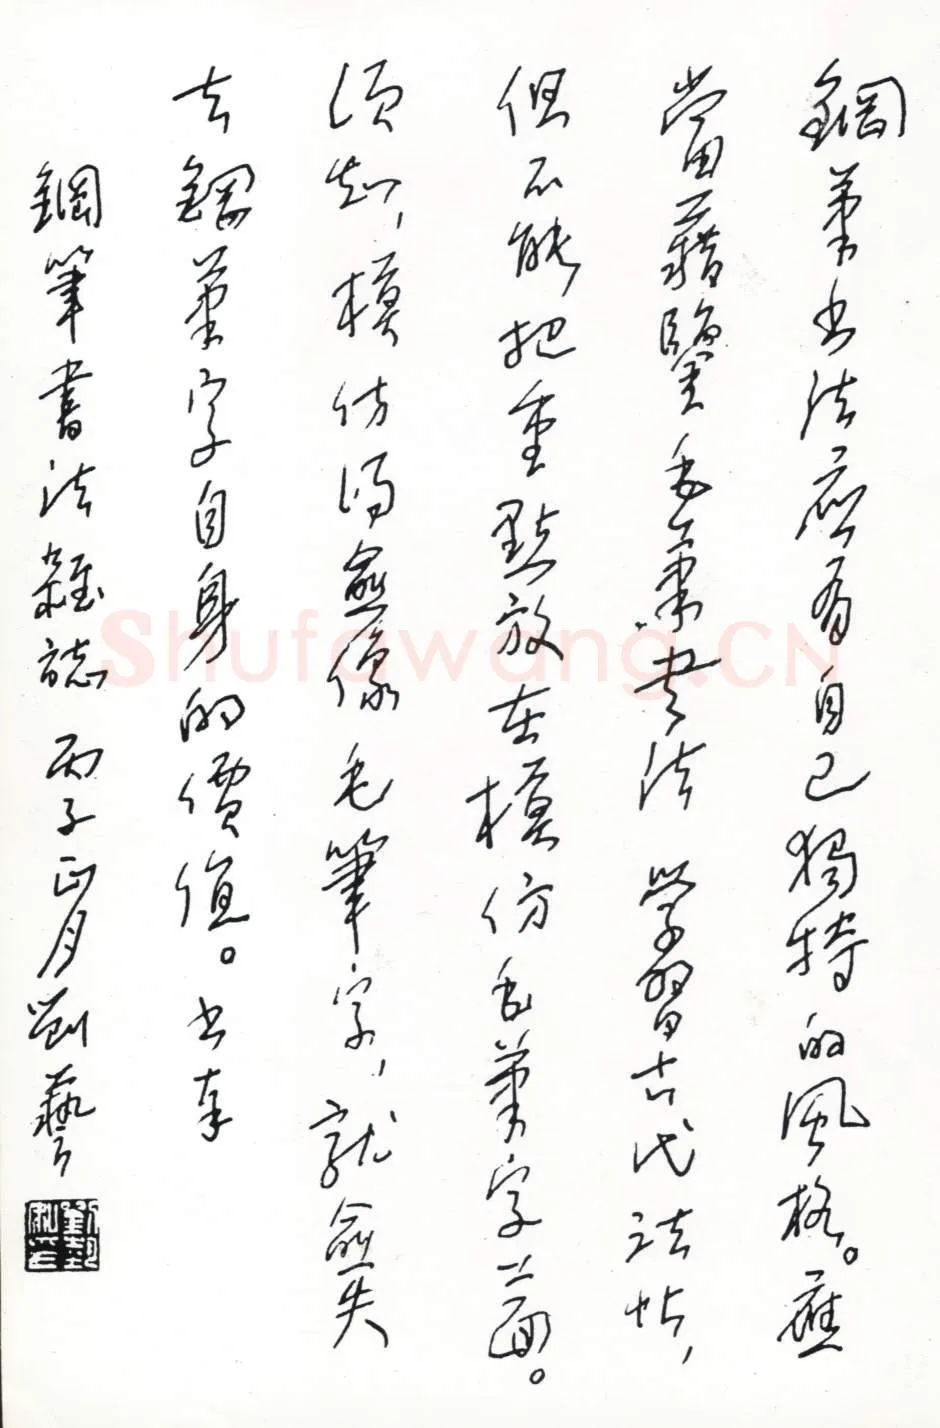 鋼筆书法應有自己獨特的風格。應
當藉鑒毛筆書法 學習古代法帖，
但不能把重點放在模仿毛筆字上面。
須知，模仿得愈像毛筆字，就愈失
去鋼筆字自身的價值。书奉
鋼筆書法雜誌 丙子正月劉藝
Shufawang.CN